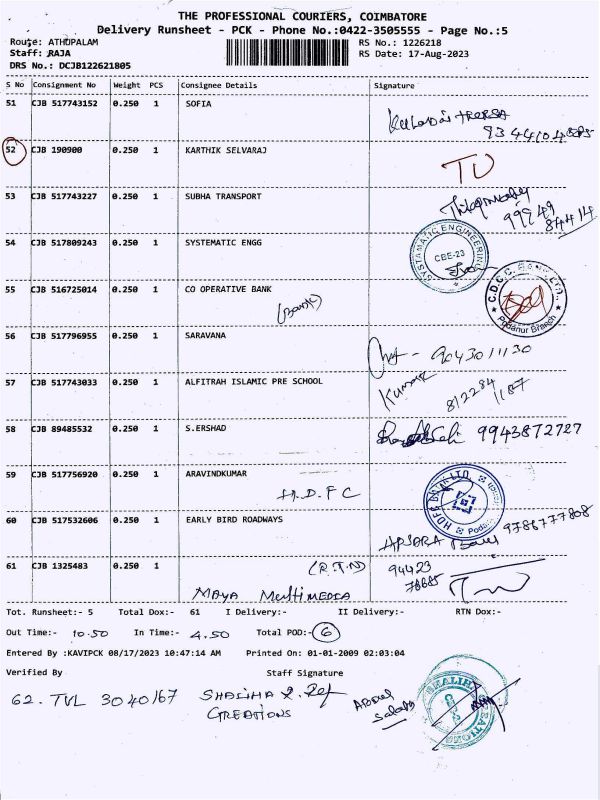 THE PROFESSIONAL COURIERS, COIMBATORE
Delivery Runsheet - PCK - Phone No.:0422-3505555 - Page No.:5
Route: ATHUPALAM
RS No.: 1226218
Staff: RAJA
RS Date: 17-Aug-2023
DRS No.: DCJB122621805
S No Consignment No Weight PCS Consignee Details Signature
51 CJB 517743152 0.250 1 SOFIA
52 CJB 190900 0.250 1 KARTHIK SELVARAJ
53 CJB 517743227 0.250 1 SUBHA TRANSPORT
99949
84414
54 CJB 517809243 0.250 1 SYSTEMATIC ENGG
SYSTAMATIC ENGINEERING
CBE-23
55 CJB 516725014 0.250 1 CO OPERATIVE BANK
(Bank)
Podanur Branch
56 CJB 517796955 0.250 1 SARAVANA
9043011130
57 CJB 517743033 0.250 1 ALFITRAH ISLAMIC PRE SCHOOL
Kumar
812284
1187
58 CJB 89485532 0.250 1 S.ERSHAD
9943872727
59 CJB 517756920 0.250 1 ARAVINDKUMAR
H.D.F.C
60 CJB 517532606 0.250 1 EARLY BIRD ROADWAYS
9786777808
61 CJB 1325483 0.250 1
(R.T.N)
94423
Maya Multimedia
Tot. Runsheet:- 5 Total Dox:- 61 I Delivery:- II Delivery:- RTN Dox:-
Out Time:- 10.50 In Time:- 4.50 Total POD:- 6
Entered By :KAVIPCK 08/17/2023 10:47:14 AM Printed On: 01-01-2009 02:03:04
Verified By Staff Signature
62. TVL 3040167
CREATIONS
Abdul
Salam